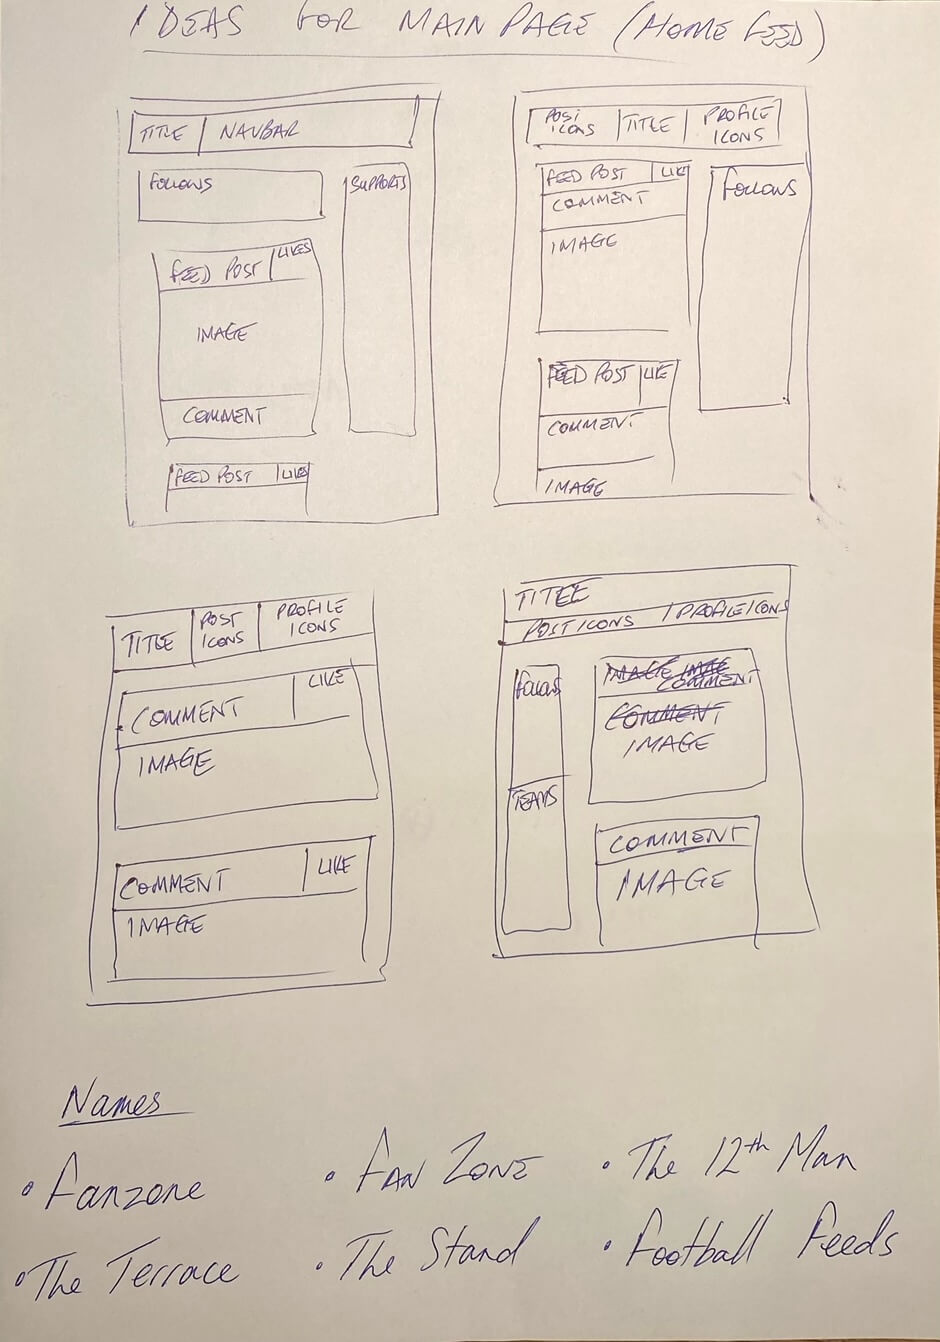 IDEAS FOR MAIN PAGE (HOME FEED)
TITLE NAVBAR
FOLLOWS
SUPPORTS
FEED POST LIKES
IMAGE
COMMENT
FEED POST LIKES
POST ICONS TITLE PROFILE ICONS
FEED POST LIKE
COMMENT
IMAGE
FOLLOWS
FEED POST LIKE
COMMENT
IMAGE
TITLE POST ICONS PROFILE ICONS
COMMENT LIKE
IMAGE
COMMENT LIKE
IMAGE
TITLE
POST ICONS PROFILE ICONS
FOLLOWS
TEAMS
IMAGE
COMMENT
COMMENT
IMAGE
COMMENT
IMAGE
Names
• Fanzone • FAN ZONE • The 12th Man
• The Terrace • The Stand • Football Feeds